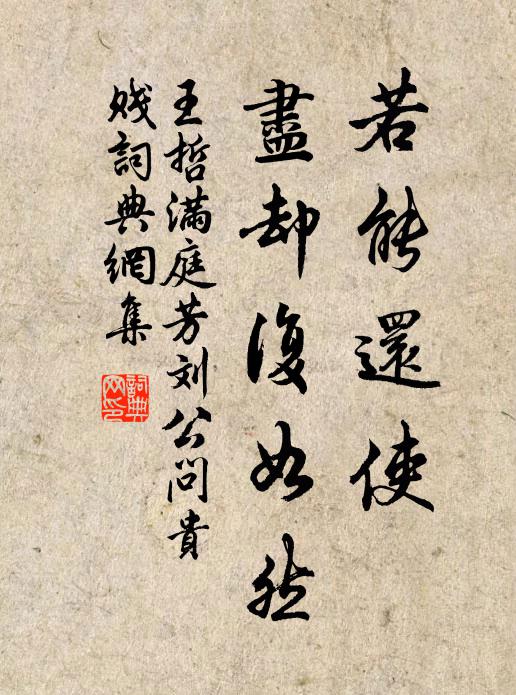 若能還使
盡却復如然
王哲满庭芳刘公问貴
贱詞典網集
詞典网印